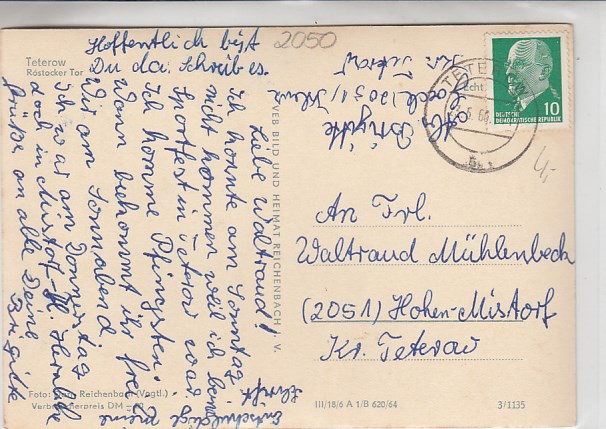 Hoffentlich bist
Du da. Schreib es.
2050
Teterow
Röstocker Tor
Liebe Waltraud!
Ich konnte am Sonntag
nicht kommen weil ich beim
Sportfest in Teterow war.
Ich komme Pfingsten.
Wann bekommt ihr frei?
Wir am Sonnabend.
Ich war am Donnerstag
doch in Mistorf.
Grüße an alle Deine
Brigitte
Entschuldige meine
Schrift
Abs. Brigitte
(2051)
Krs. Teterow
VEB BILD UND HEIMAT REICHENBACH i. V.
TETEROW
10
DEUTSCHE
DEMOKRATISCHE REPUBLIK
4,-
An Frl.
Waltraud Mühlenbeck
(2051) Hohen-Mistorf
Kr. Teterow
Foto: Reichenbach (Vogtl.)
Verbraucherpreis DM
III/18/6 A 1/B 620/64
3/1135